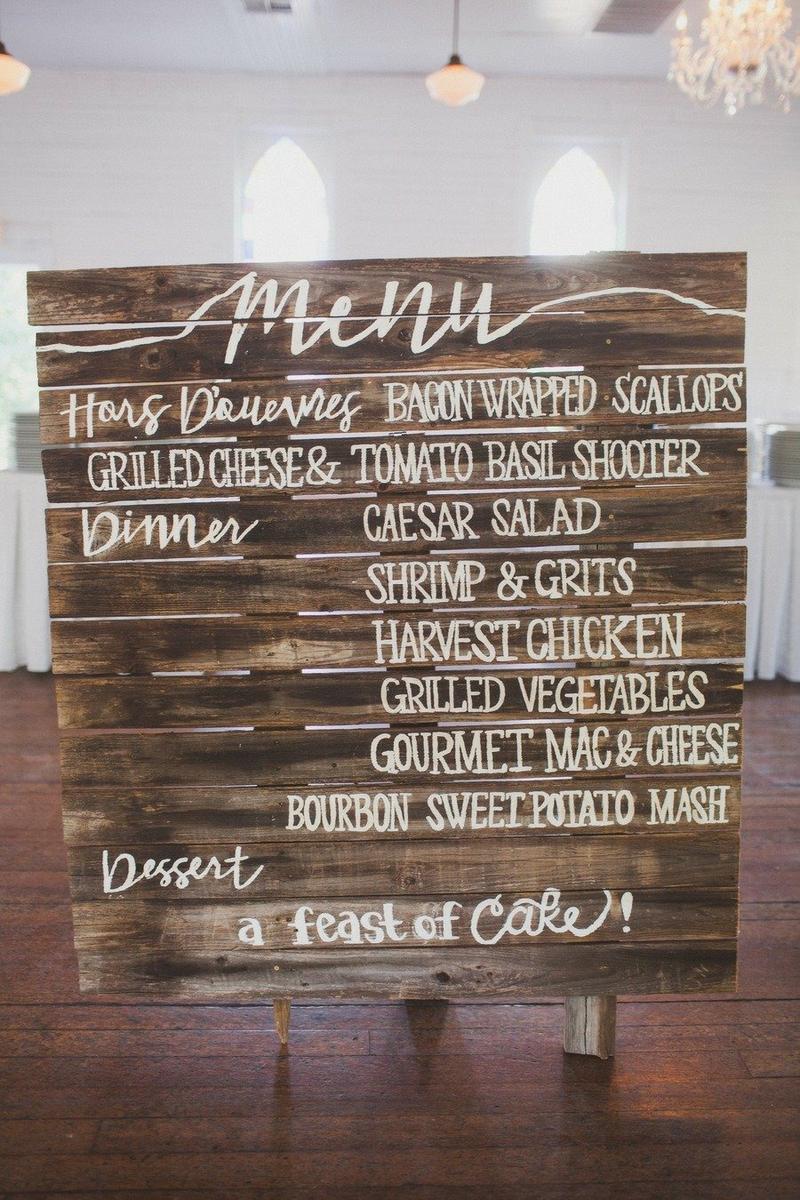 Menu
Hors D'ouervres BACON WRAPPED SCALLOPS
GRILLED CHEESE & TOMATO BASIL SHOOTER
Dinner CAESAR SALAD
SHRIMP & GRITS
HARVEST CHICKEN
GRILLED VEGETABLES
GOURMET MAC & CHEESE
BOURBON SWEET POTATO MASH
Dessert
a feast of Cake!